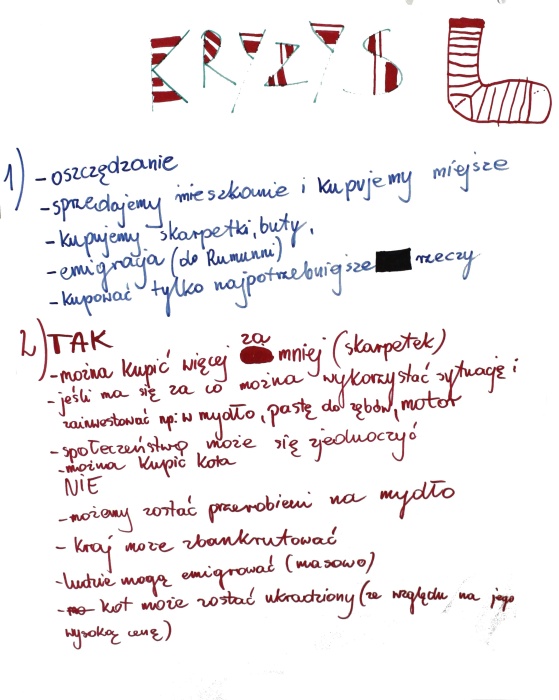 KRYZYS
1) - oszczędzanie
- sprzedajemy mieszkanie i kupujemy miejsze
- kupujemy skarpetki, buty,
- emigracja (do Rumunni)
- kupować tylko najpotrzebniejsze rzeczy
2) TAK
- można kupić więcej za mniej (skarpetek)
- jeśli ma się za co można wykorzystać sytuację i
zainwestować np: w mydło, pastę do zębów, motor
- społeczeństwo może się zjednoczyć
- można kupić kota
NIE
- możemy zostać przerobieni na mydło
- kraj może zbankrutować
- ludzie mogą emigrować (masowo)
- kot może zostać ukradziony (ze względu na jego
wysoką cenę)